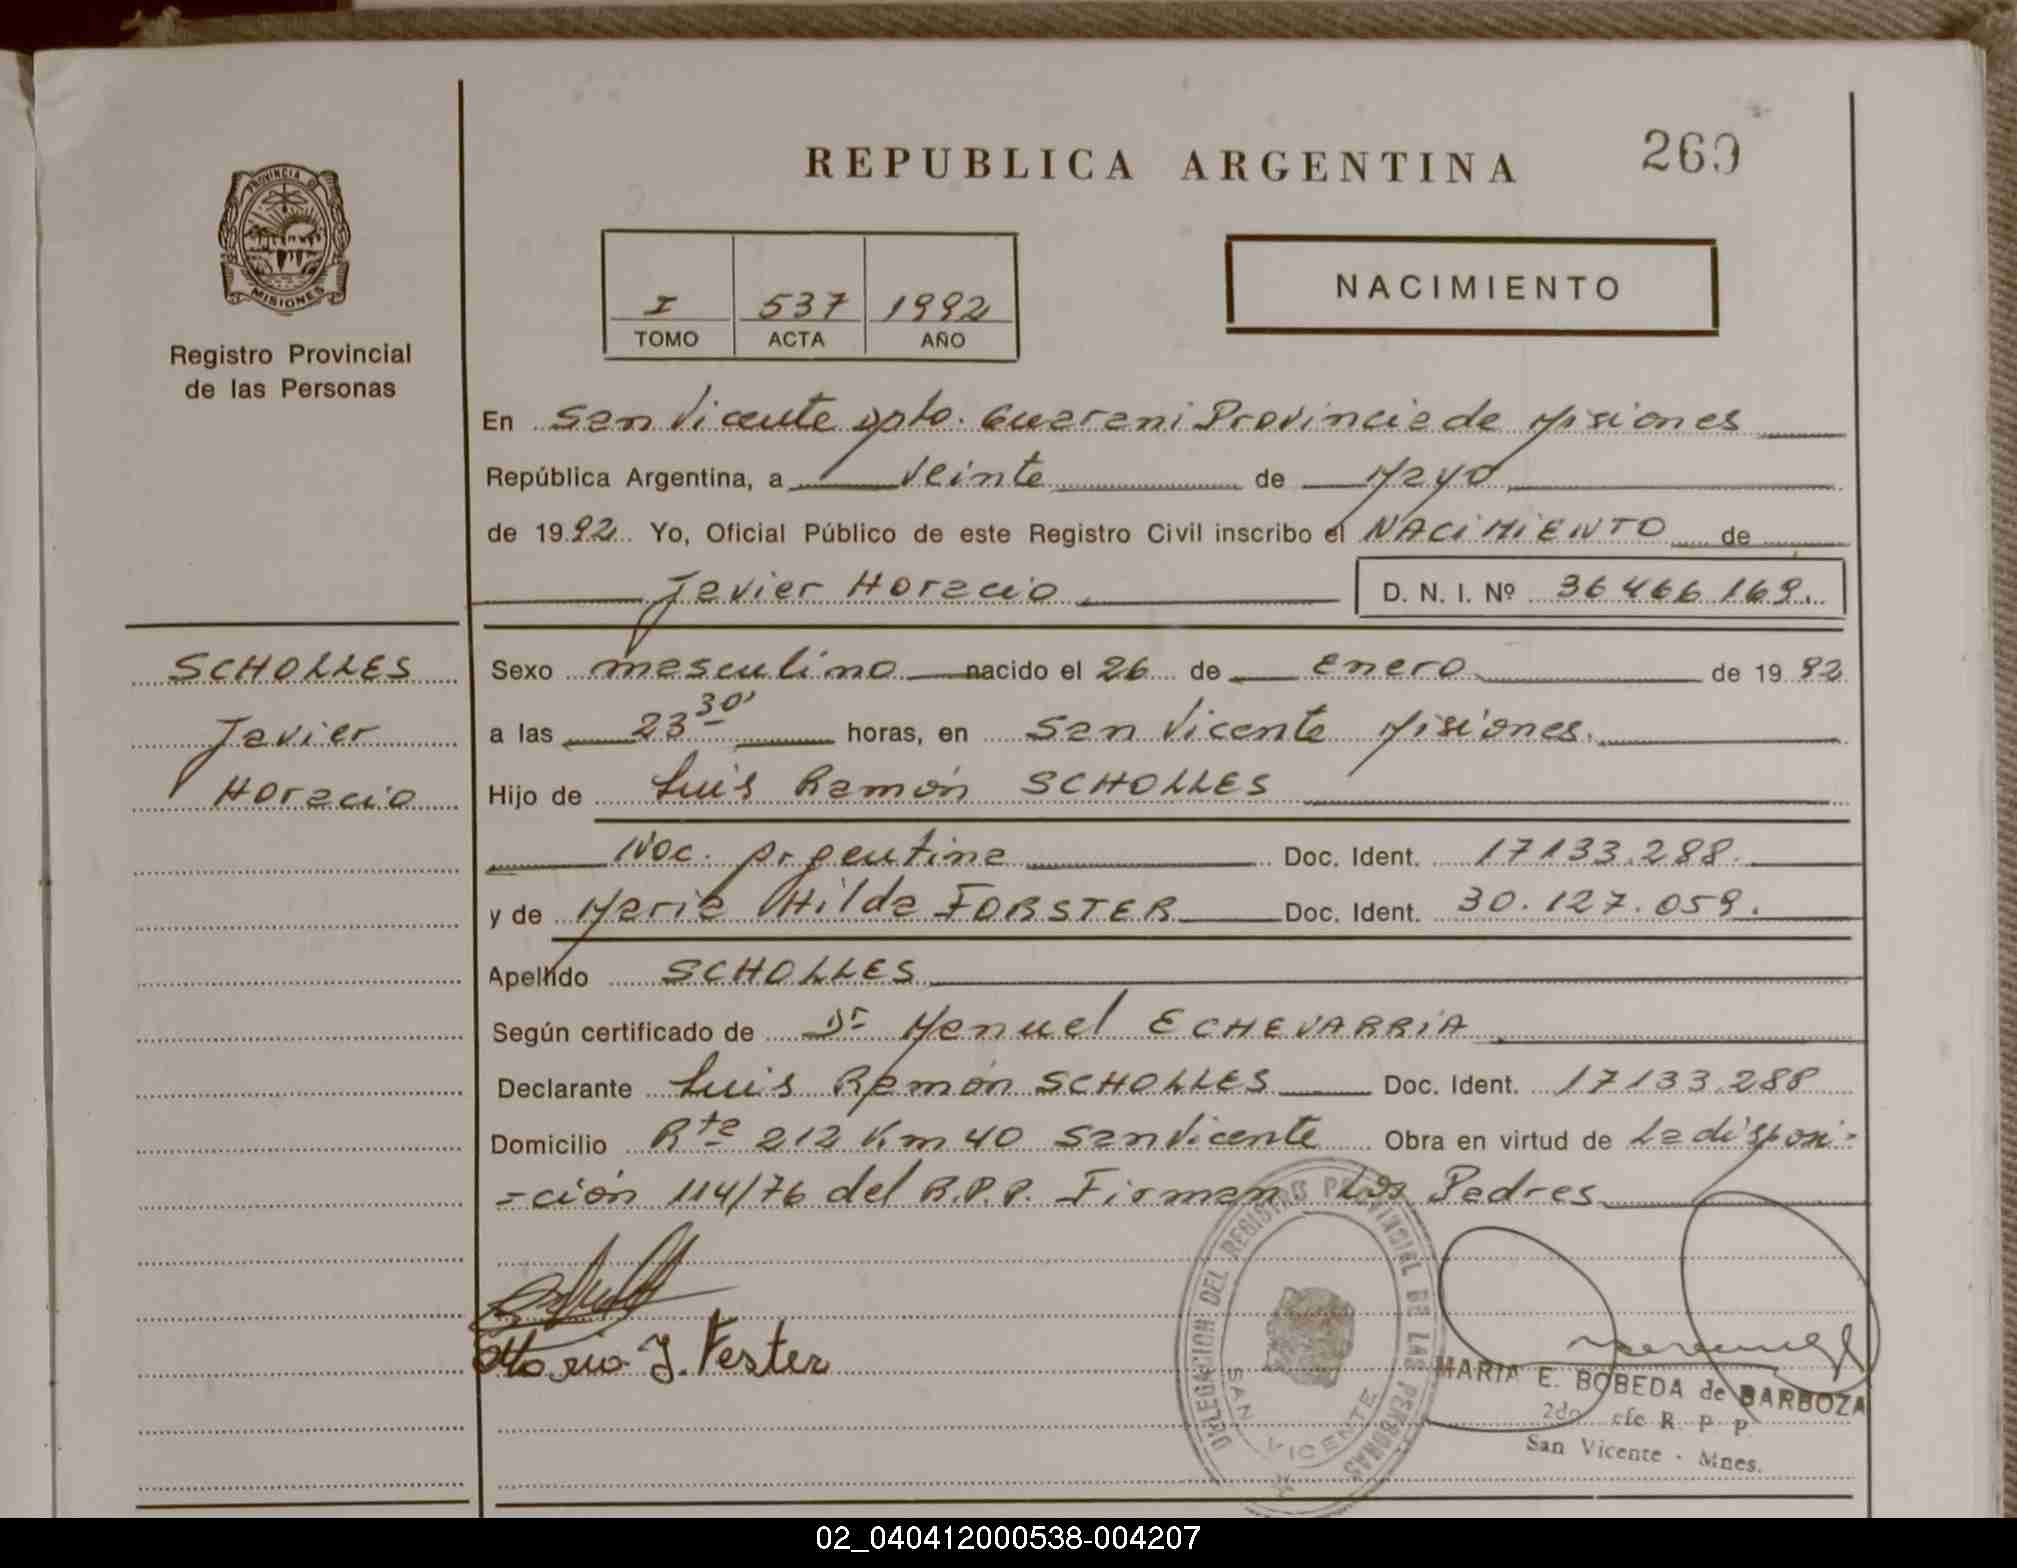 REPUBLICA ARGENTINA
269
PROVINCIA D
MISIONES
Registro Provincial
de las Personas
I 537 1992
TOMO ACTA AÑO
NACIMIENTO
En San Vicente Dpto. Guarani Provincia de Misiones
República Argentina, a Veinte de Mayo
de 1992 Yo, Oficial Público de este Registro Civil inscribo el NACIMIENTO de
Javier Horacio D. N. I. Nº 36466169.
SCHOLLES
Javier
Horacio
Sexo masculino nacido el 26 de Enero de 1992
a las 23 30' horas, en San Vicente Misiones.
Hijo de Luis Ramón SCHOLLES
Nac. Argentina Doc. Ident. 17133.288.
y de Maria Hilda FORSTER Doc. Ident. 30.127.059.
Apellido SCHOLLES
Según certificado de Dr Manuel ECHEVARRIA
Declarante Luis Ramón SCHOLLES Doc. Ident. 17133.288
Domicilio Rta 212 Km 40 San Vicente Obra en virtud de La disposi=
=ción 114/76 del R.P.P. Firman Los Padres
J. Fester
DELEGACION DEL REGISTRO PROVINCIAL DE LAS PERSONAS
SAN VICENTE
MARIA E. BOBEDA de BARBOZA
2do. efe R. P. P.
San Vicente - Mnes.
02_040412000538-004207